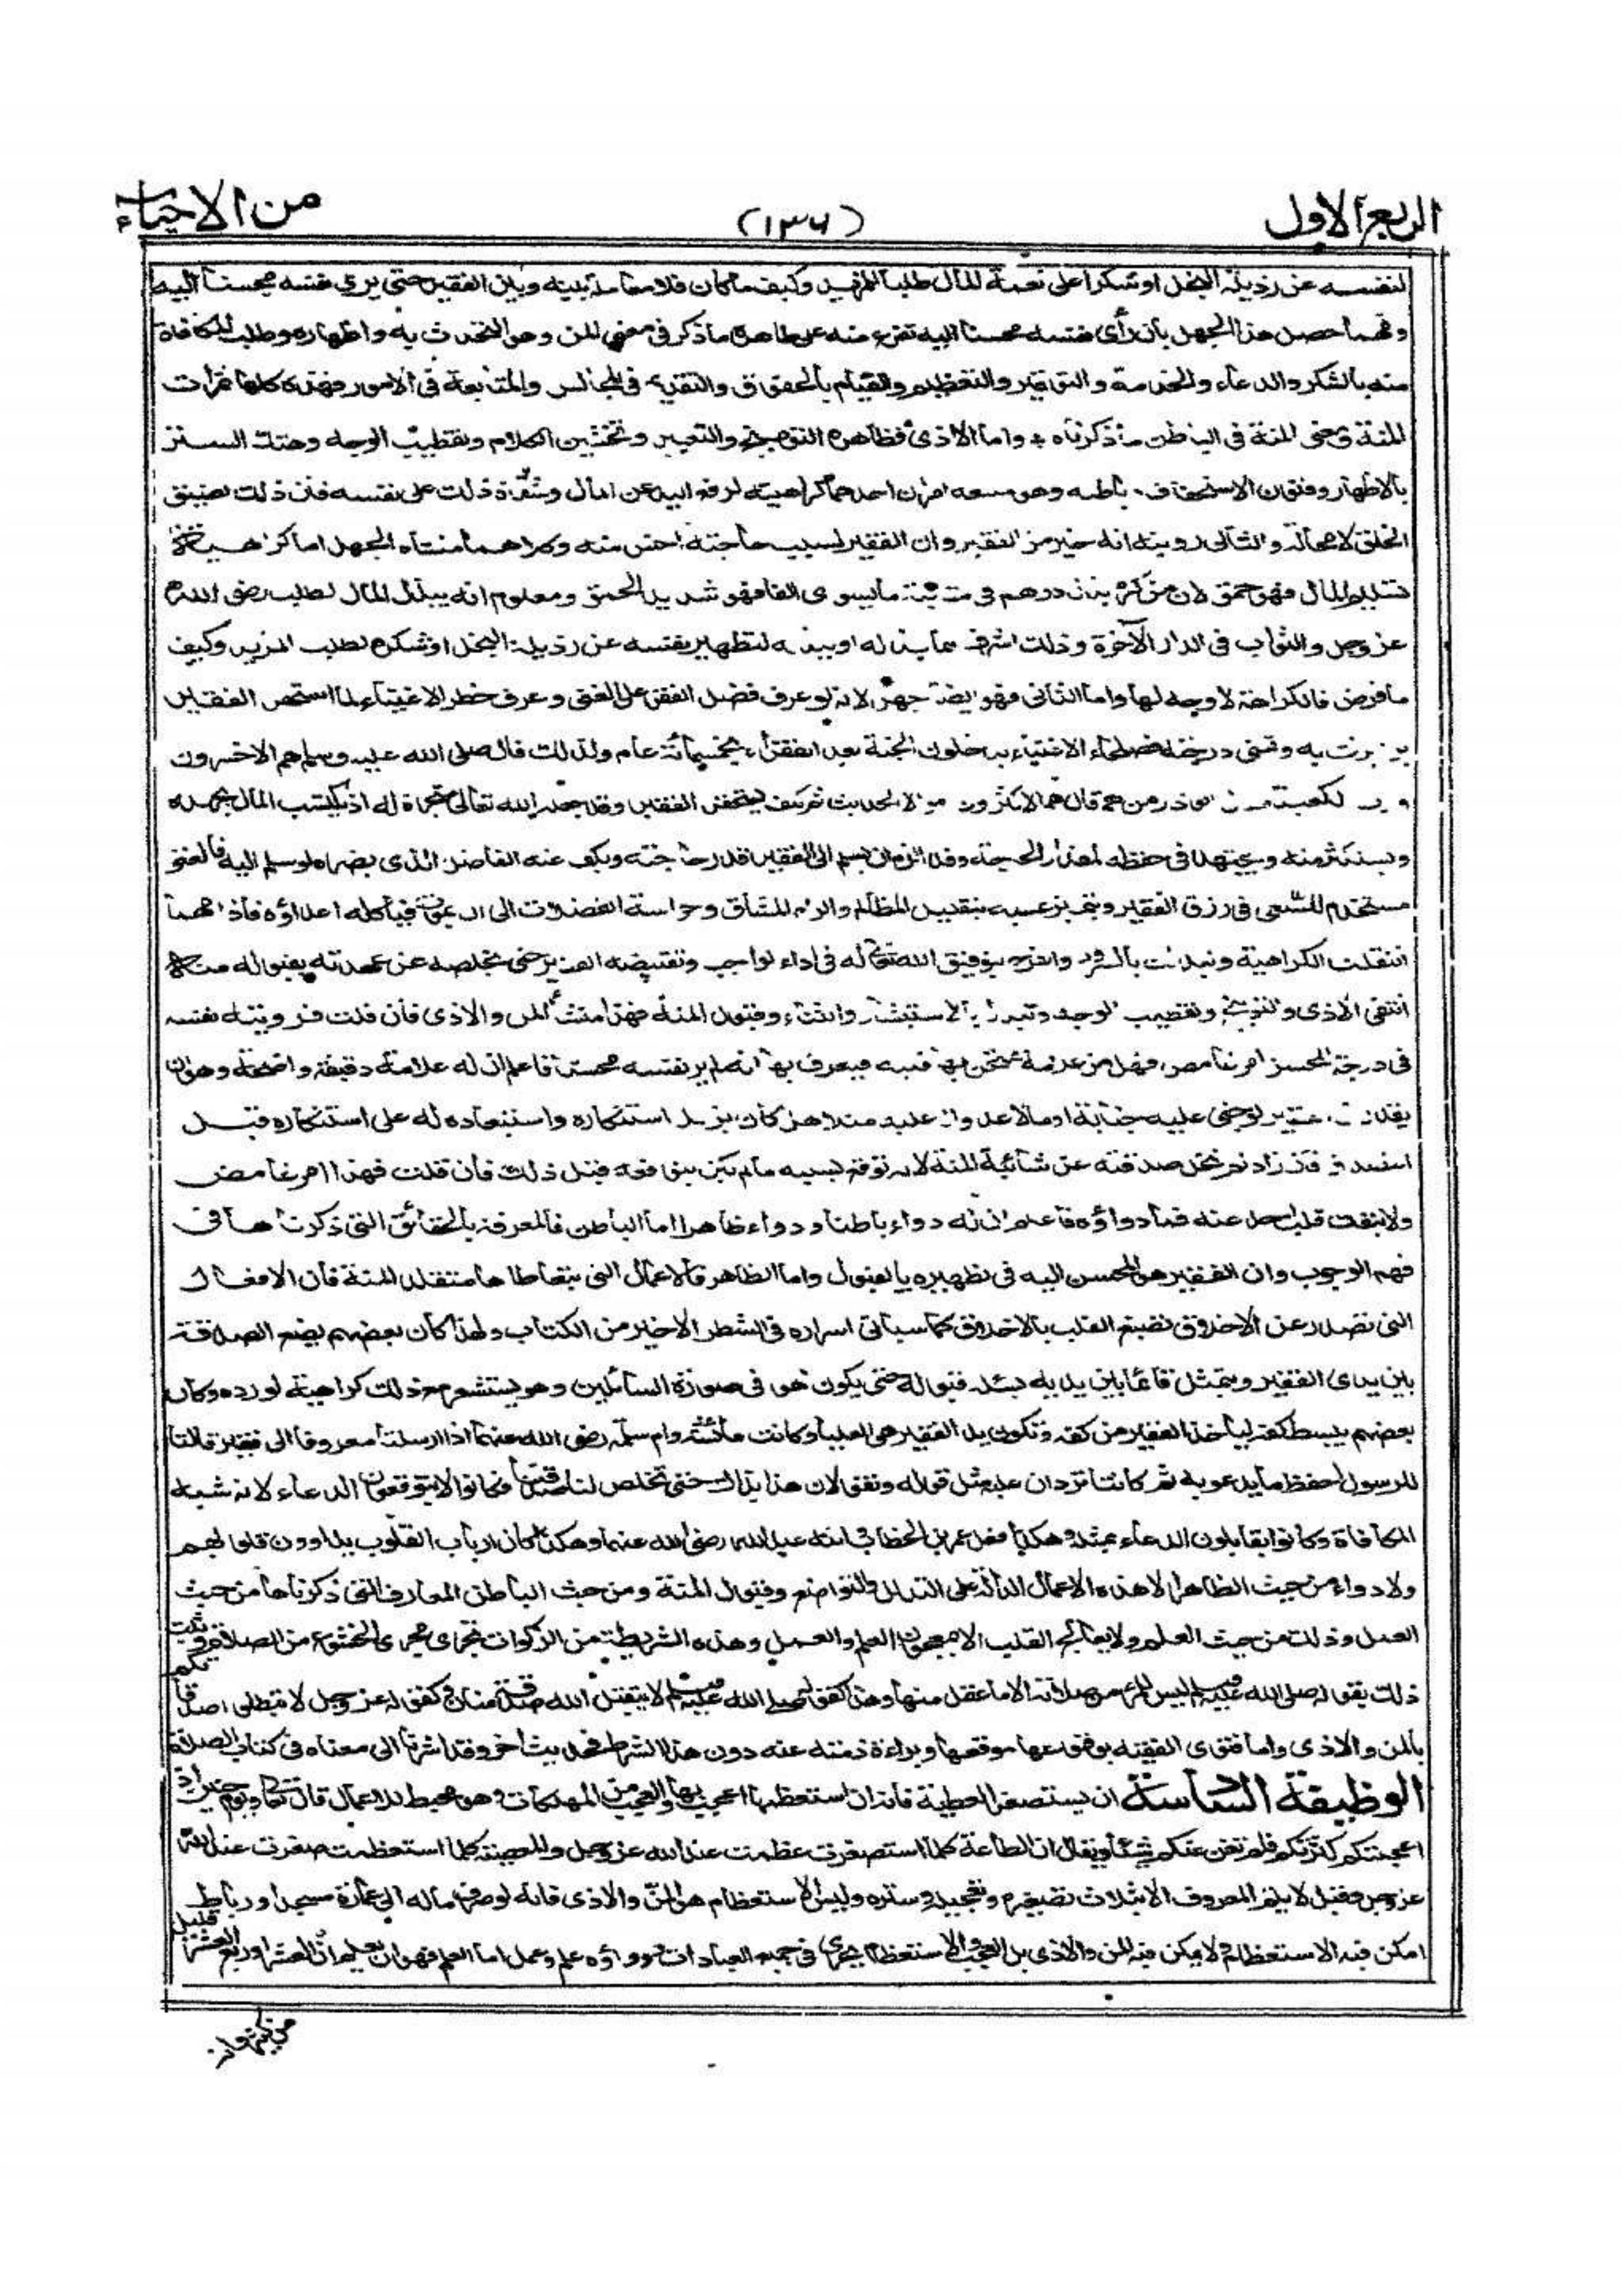 الربع الاول
(١٣٦)
من الاحياء
لنفسه عن رذيلة البخل او شكرا على نعمة المال طلبا للمزيد وكيف ما كان فلا معاملة بينه وبين الفقير حتى يرى نفسه محسنا اليه
ومهما حصل هذا الجهل بان رأى نفسه محسنا اليه تفرع منه على ظاهره ما ذكر فى معنى المن وهو التحدث به واظهاره وطلب المكافاة
منه بالشكر والدعاء والخدمة والتوقير والتعظيم والقيام بالحقوق والتقديم فى المجالس والمتابعة فى الامور فهذه كلها ثمرات
المنة ومعنى المنة فى الباطن ما ذكرناه واما الاذى فظاهره التوبيخ والتعيير وتخشين الكلام وتقطيب الوجه وهتك الستر
بالاظهار وفنون الاستخفاف وباطنه وهو منبعه امران احدهما كراهيته لرفع اليد عن المال وشدة ذلك على نفسه فان ذلك يضيق
الخلق لا محالة والثانى رويته انه خير من الفقير وان الفقير لسبب حاجته اخس منه وكلاهما منشاه الجهل اما كراهية
تسليم المال فهو حمق لان من كره بذل درهم فى مقابلة ما يسوى الفا فهو شديد الحمق ومعلوم انه يبذل المال لطلب رضى الله
عز وجل والثواب فى الدار الآخرة وذلك اشرف مما بذله او يبذله لتطهير نفسه عن رذيلة البخل او شكر لطلب المزيد وكيف
ما فرض فالكراهة لا وجه لها واما الثانى فهو ايضا جهل لانه لو عرف فضل الفقر على الغنى وعرف خطر الاغنياء لما استحقر الفقير
بل تبرك به وتمنى درجته فصلحاء الاغنياء يدخلون الجنة بعد الفقراء بخمسمائة عام ولذلك قال صلى الله عليه وسلم هم الاخسرون
ورب الكعبة فقال ابو ذر من هم قال هم الاكثرون الحديث ثم كيف يستحقر الفقير وقد جعله الله تعالى متجرة له اذ يكتسب المال بجهده
ويستكثر منه ويجتهد فى حفظه لمقدار الحاجة وقد الزم ان يسلم الى الفقير قدر حاجته ويكف عنه الفاضل الذى يضره لو سلم اليه فالغنى
مستخدم للسعى فى رزق الفقير ويتميز عليه بتقليد المظالم والتزام المشاق وحراسة الفضلات الى ان يموت فيأكله اعداؤه فاذا مهما
انتقلت الكراهية وتبدلت بالسرور والفرح بتوفيق الله تعالى له فى اداء الواجب وتقبيضه الفقير حتى يخلصه عن عهدته بقبوله منه
انتفى الاذى والتوبيخ وتقطيب الوجه وتبدل بالاستبشار والثناء وقبول المنة فهذا منشأ المن والاذى فان قلت فرويته نفسه
فى درجة المحسن امر غامض فهل من علامة يمتحن بها قلبه فيعرف بها انه لم ير نفسه محسنا فاعلم ان له علامة دقيقة واضحة وهو ان
يقدر ان الفقير لو جنى عليه جناية او مالا عدوا له عليه مثلا هل كان يزيد استنكاره واستبعاده له على استنكاره قبل
التصدق فان زاد لم تخل صدقته عن شائبة المنة لانه توقع بسببه ما لم يكن يتوقعه قبل ذلك فان قلت فهذا امر غامض
ولا ينفك قلب احد عنه فما دواؤه فاعلم ان له دواء باطنا ودواء ظاهرا اما الباطن فالمعرفة بالحقائق التى ذكرناها فى
فهم الوجوب وان الفقير هو المحسن اليه فى تطهيره بالقبول واما الظاهر فالاعمال التى يتعاطاها متقلد المنة فان الافعال
التى تصدر عن الاخلاق تصبغ القلب بالاخلاق كما سيأتى اسراره فى الشطر الاخير من الكتاب ولهذا كان بعضهم يضع الصدقة
بين يدى الفقير ويتمثل قائما بين يديه يسئله قبولها حتى يكون هو فى صورة السائلين وهو يستشعر مع ذلك كراهية لو رده وكان
بعضهم يبسط كفه ليأخذ الفقير من كفه وتكون يد الفقير هى العليا وكانت عائشة وام سلمة رضى الله عنهما اذا ارسلتا معروفا الى فقير قالتا
للرسول احفظ ما يدعو به ثم كانتا تردان عليه مثل قوله وتقولان هذا بذاك حتى تخلص لنا صدقتنا فكانوا لا يتوقعون الدعاء لانه شبه
المكافاة وكانوا يقابلون الدعاء بمثله وهكذا فعل عمر بن الخطاب وابنه عبد الله رضى الله عنهما وهكذا كان ارباب القلوب يداوون قلوبهم
ولا دواء من حيث الظاهر الا هذه الاعمال الدالة على التذلل والتواضع وقبول المنة ومن حيث الباطن المعارف التى ذكرناها من حيث
العمل وذلك من حيث العلم ولا يعالج القلب الا بمعجون العلم والعمل وهذه الشريطة من الزكوات تجرى مجرى الخشوع من الصلاة وثبت
ذلك بقوله صلى الله عليه وسلم ليس للمرء من صلاته الا ما عقل منها وهذا كقوله صلى الله عليه وسلم لا يتقبل الله صدقة منان وكقوله عز وجل لا تبطلوا صدقاتكم
بالمن والاذى واما فتوى الفقيه بوقوعها موقعها وبراءة ذمته عنه دون هذا الشرط فحديث آخر وقد اشرنا الى معناه فى كتاب الصلاة
الوظيفة السادسة ان يستصغر العطية فانه ان استعظمها اعجب بها والعجب من المهلكات وهو محبط للاعمال قال تعالى ويوم حنين اذ
اعجبتكم كثرتكم فلم تغن عنكم شيئا ويقال ان الطاعة كلما استصغرت عظمت عند الله عز وجل والمعصية كلما استعظمت صغرت عند الله
عز وجل وقيل لا يتم المعروف الا بثلاث تصغيره وتعجيله وستره وليس الاستعظام هو المن والاذى فانه لو صرف ماله الى عمارة مسجد او رباط
امكن فيه الاستعظام ولا يمكن فيه المن والاذى بل العجب والاستعظام يجرى فى جميع العبادات ودواؤه علم وعمل اما العلم فهو ان يعلم ان العشر او ربع العشر قليل